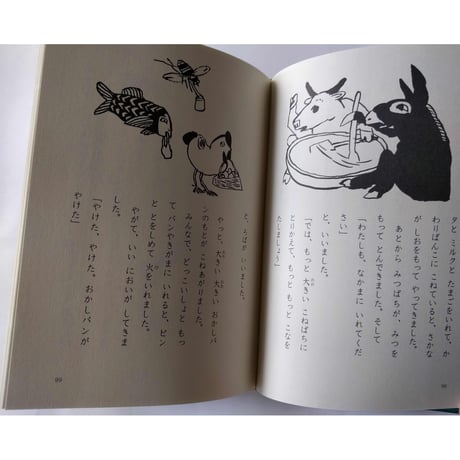 タと ミルクと たまごをいれて、か
わりばんこに こねていると、さかな
が、しおをもって やってきました。
あとから みつばちが、みつを
もって とんできました。そして
「わたしも、なかまに いれてくだ
さい」
と、いいました。
「では、もっと 大きい こねばちに
とりかえて、もっと もっと こなを
たしましょう」
98
と、ろばが いいました。
やっと、大きい 大きい おかしパ
ンのもとが こねあがりました。
みんなで、どっこいしょと もっ
て、パンやきがまに いれると、ピン
と とをしめて 火をいれました。
やがて、いい においが してきま
した。
「やけた、やけた、おかしパンが
やけた」
99